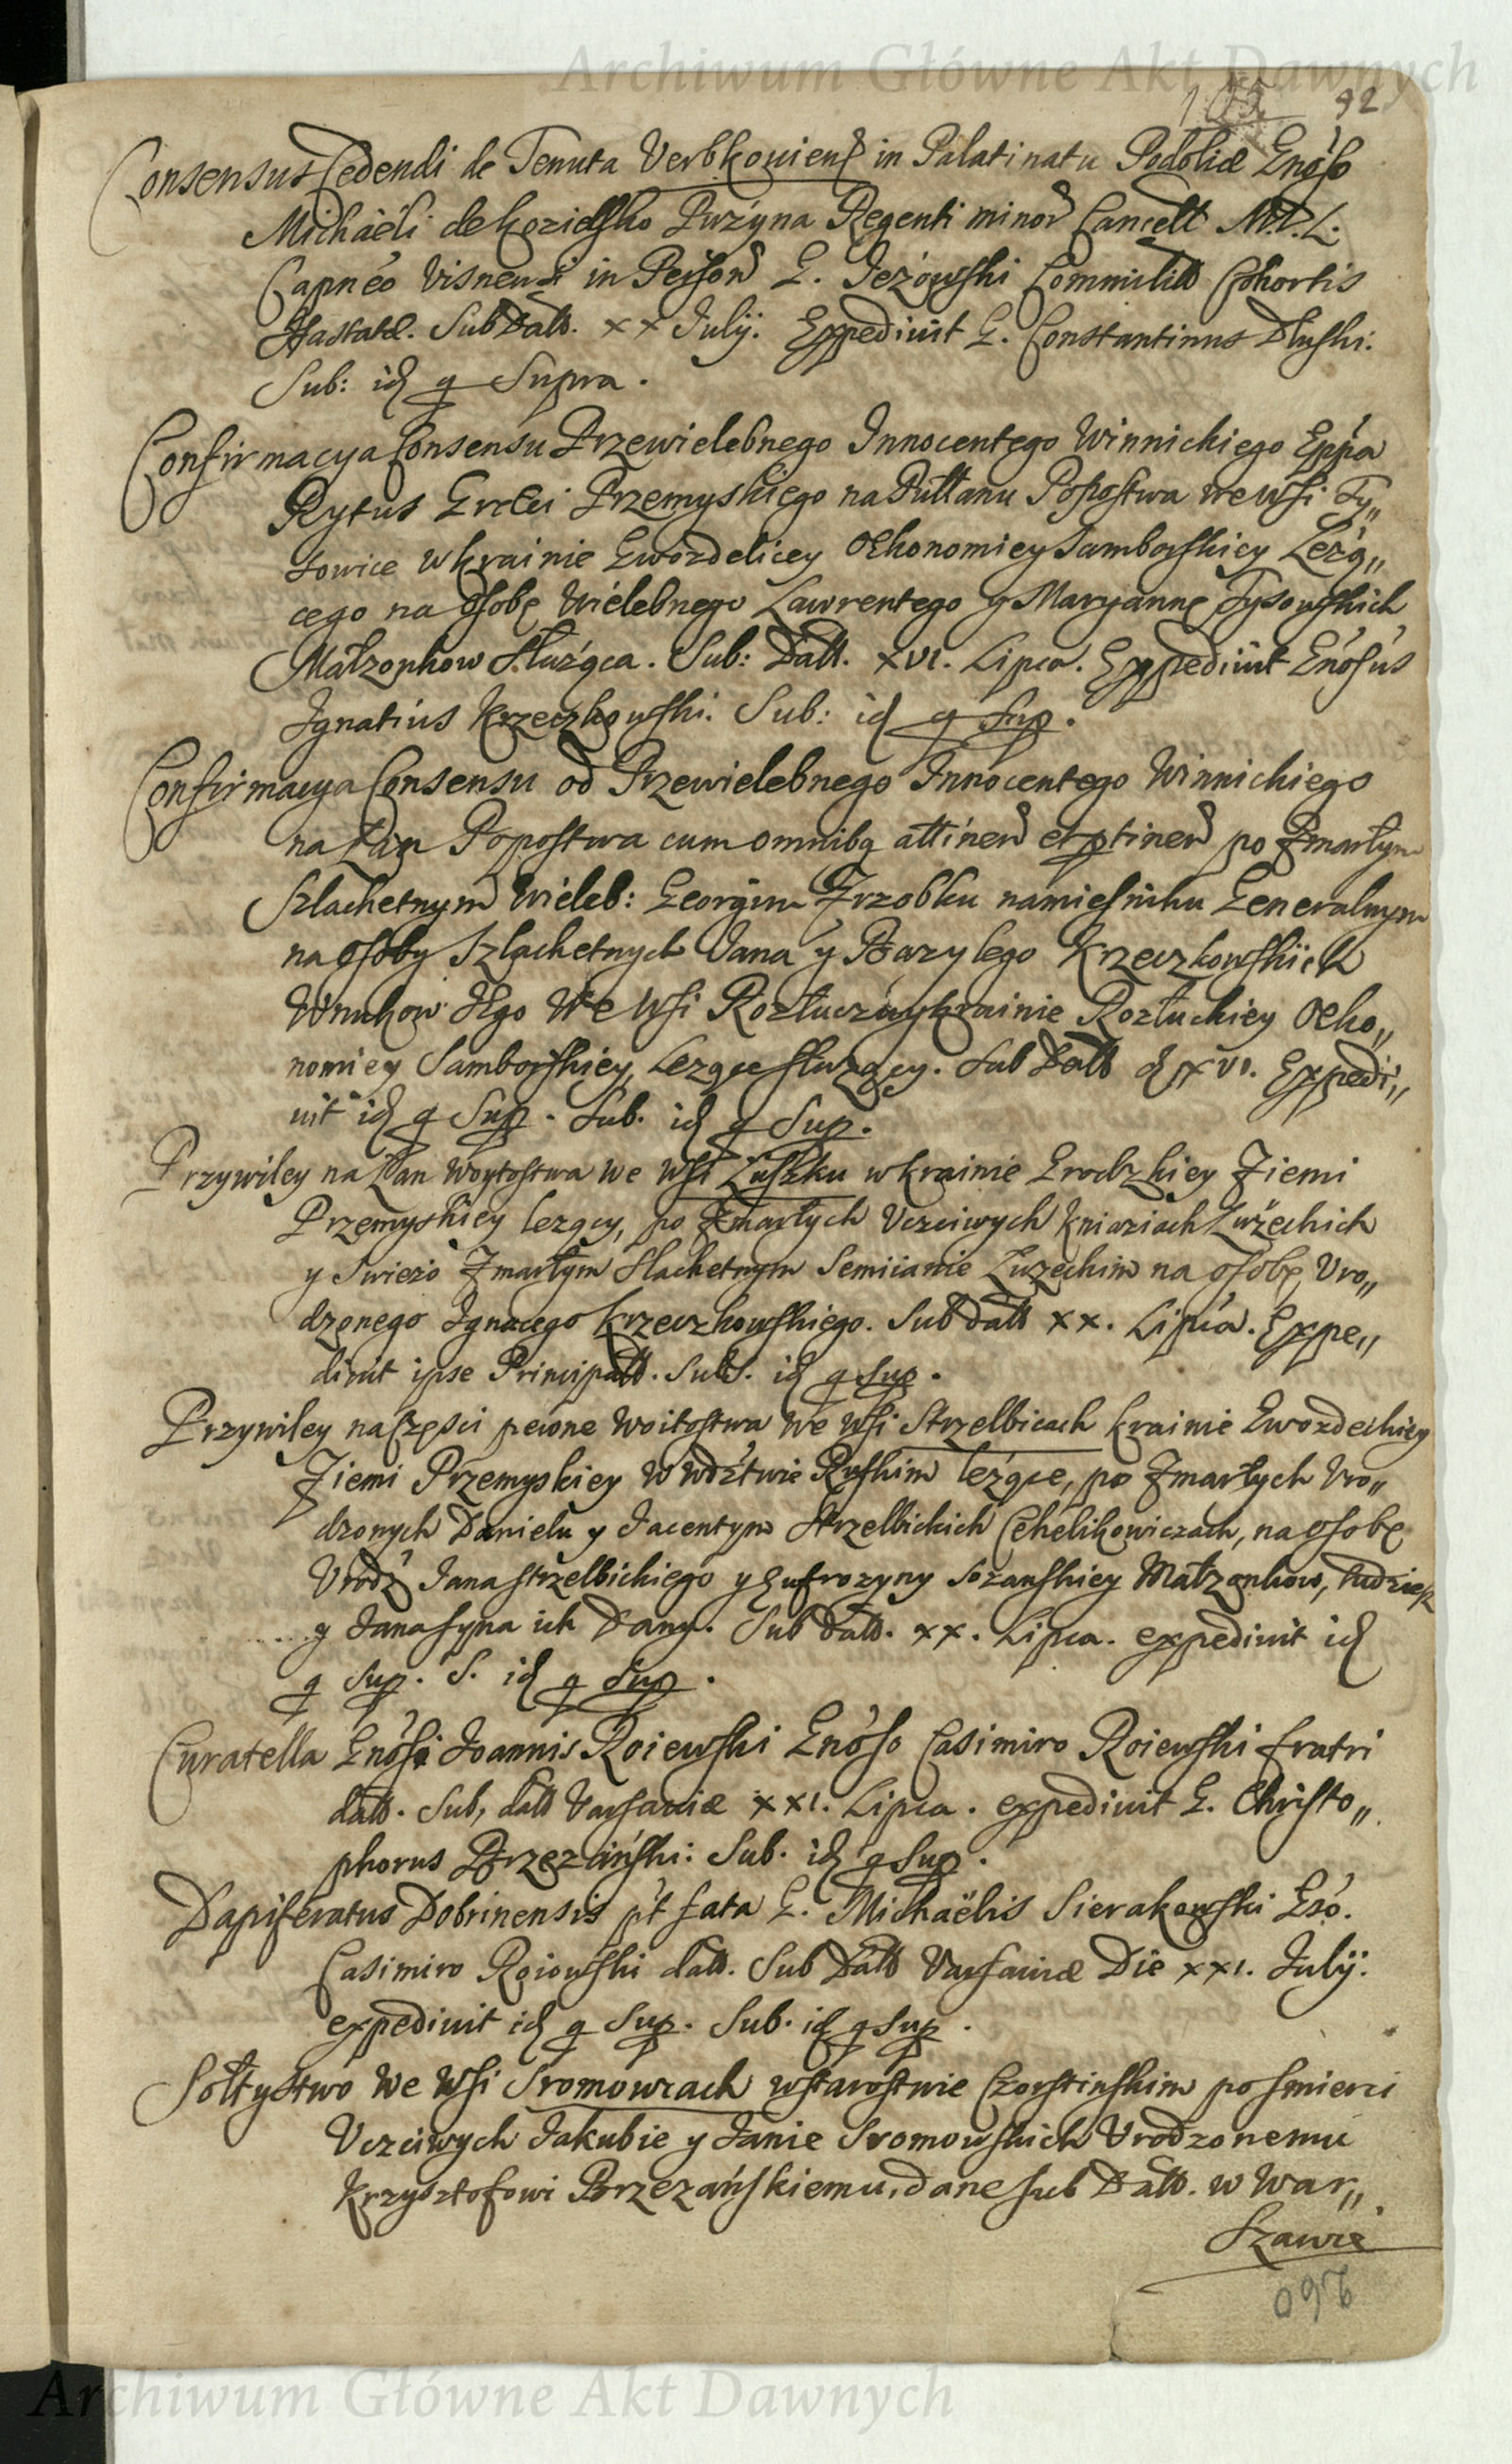 Archiwum Główne Akt Dawnych
105 92
Consensus Cedendi de Tenuta Verbkouiens in Palatinatu Podoliæ Gnoso
Michaeli de Kozielsko Puzyna Regenti minor Cancell M.D.L.
Capneo Visneusi in Person G. Jezowski Commilit Cohortis
Hastatæ. Sub Datt. xx July. Expediuit G. Constantinus Dłuski.
Sub: id q Supra.
Confirmacya Consensu Przewielebnego Innocentego Winnickiego Eppa
Rytus Græci Przemyskiego na Pułłanu Popostwa we wsi Ty„
sowice w krainie Gwozdelicey Oekonomiey Samborskiey Lezą„
cego na osobę Wielebnego Lawrentego y Maryannę Tysowskich
Małzonkow Słuząca. Sub: Datt. xvi. Lipca. Expediuit Gnosus
Ignatius Krzeczkowski. Sub: id q Sup.
Confirmacya Consensu od Przewielebnego Innocentego Winnickiego
na Łan Popostwa cum omnibq attinen et ptinen po Zmarłym
Szlachetnym Wieleb: Georgim Zrzobku namiesniku Generalnym
na osoby Szlachetnych Jana y Bazylego Krzeczkowskich
Wnukow Jego We Wsi Rozłuczu krainie Rozłuckiey Oeko„
nomiey Samborskiey, Lezące słuzący. Sub Datt d xvi. Expedi„
uit id q Sup. Sub. id q Sup.
Przywiley na Łan Woytostwa we wsi Łuzku w krainie Grodzkiey Ziemi
Przemyskiey lezący, po Zmarłych Vczciwych Kniaziach Łuzeckich
y Swiezo Zmarłym Slachetnym Semiianie Łuzeckim na osobę Vro„
dzonego Ignacego Krzeczkowskiego. Sub datt xx. Lipca. Expe„
diuit ipse Principalt. Subs. id q sup.
Przywiley na Części pewne Woitostwa We Wsi Strzelbicach krainie Gwozdeckiey
Ziemi Przemyskiey W Wdztwie Ruskim lezące, po Zmarłych Vro„
dzonych Danielu y Jacentym Strzelbickich Cehelikowiczach, na osobę
Vrodz Jana Strzelbickiego y Eufrozyny Sozanskiey Małzonkow, tudziesz
y Jana syna ich Dany. Sub datt. xx. Lipca. expediuit id
q Sup. S. id q Sup.
Curatella Gnosi Joannis Roiewski Gnoso Casimiro Roiewski fratri
datt. Sub, datt Varsauiæ xxi. Lipca. expediuit G. Christo„
phorus Brzezański: Sub. id q Sup.
Dapiferatus Dobrinensis pt fata G. Michaëlis Sierakowski Gso.
Casimiro Roiowski datt. Sub Datt Varsauiæ Die xxi. July.
expediuit id q Sup. Sub. id q Sup.
Sołtystwo We Wsi Sromowcach w starostwie Czorstinskim po smierci
Vczciwych Jakubie y Janie Sromowskich Vrodzonemu
Krzysztofowi Brzezańskiemu, dane sub Datt. w War„
Szawie
260
Archiwum Główne Akt Dawnych